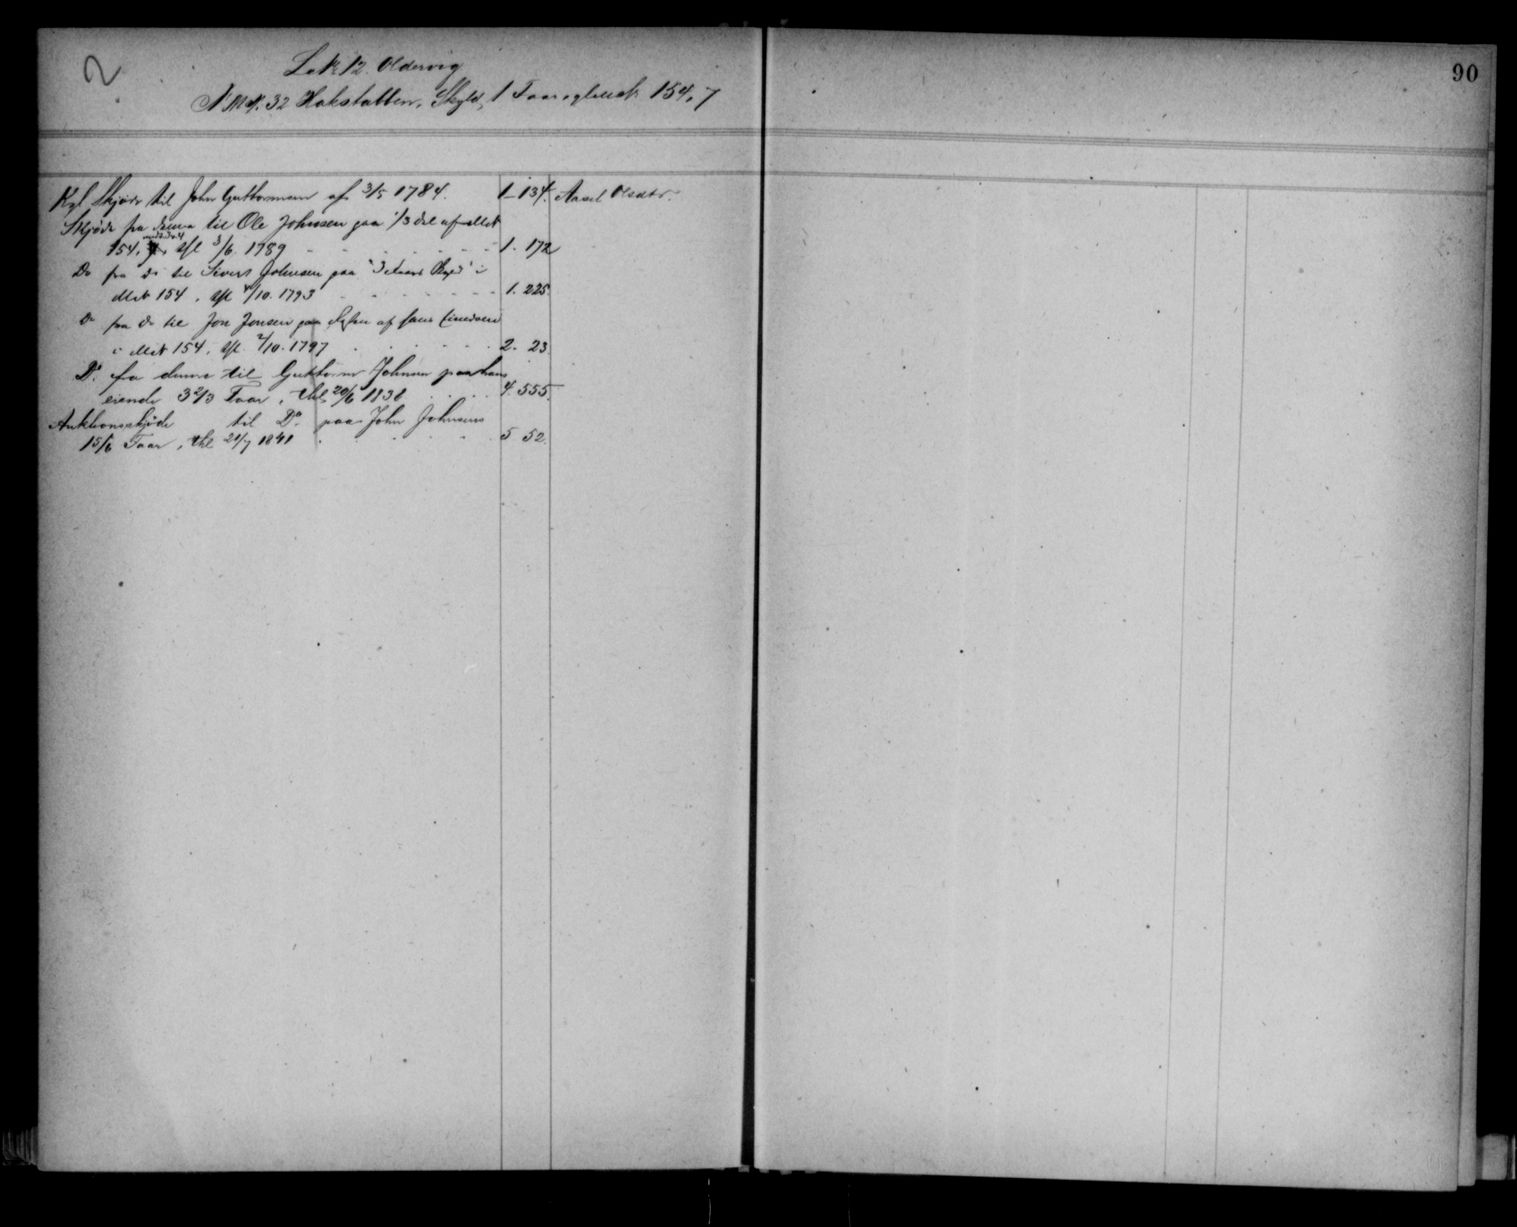 2
90
L.k. 12. Oldervig
N. Mat. 32 Hakstabben, Skyld, 1 Faar, gl. mat. 154, 7
Kgl Skjöde til John Guttormsen af 3/5 1784. 1 - 134. Aasel Olsdtr.
Skjöde fra denne til Ole Johnsen paa 1/3 del af Mat
154, thl 3/6. 1789 1. 172
Do fra do til Sivert Johnsen paa
Mat 154, thl 4/10. 1793 1. 225.
Do fra do til Jon Jonsen paa af
i Mat 154. thl. 2/10. 1797 2. 23.
Do. fra denne til Guttorm Johnsen paa hans
eiende 3 2/3 Faar, thl 20/6 1838 4. 555.
Auktionsskjöde til Do. paa John Johnsens
1 5/6 Faar, thl 21/7 1841 5 52.